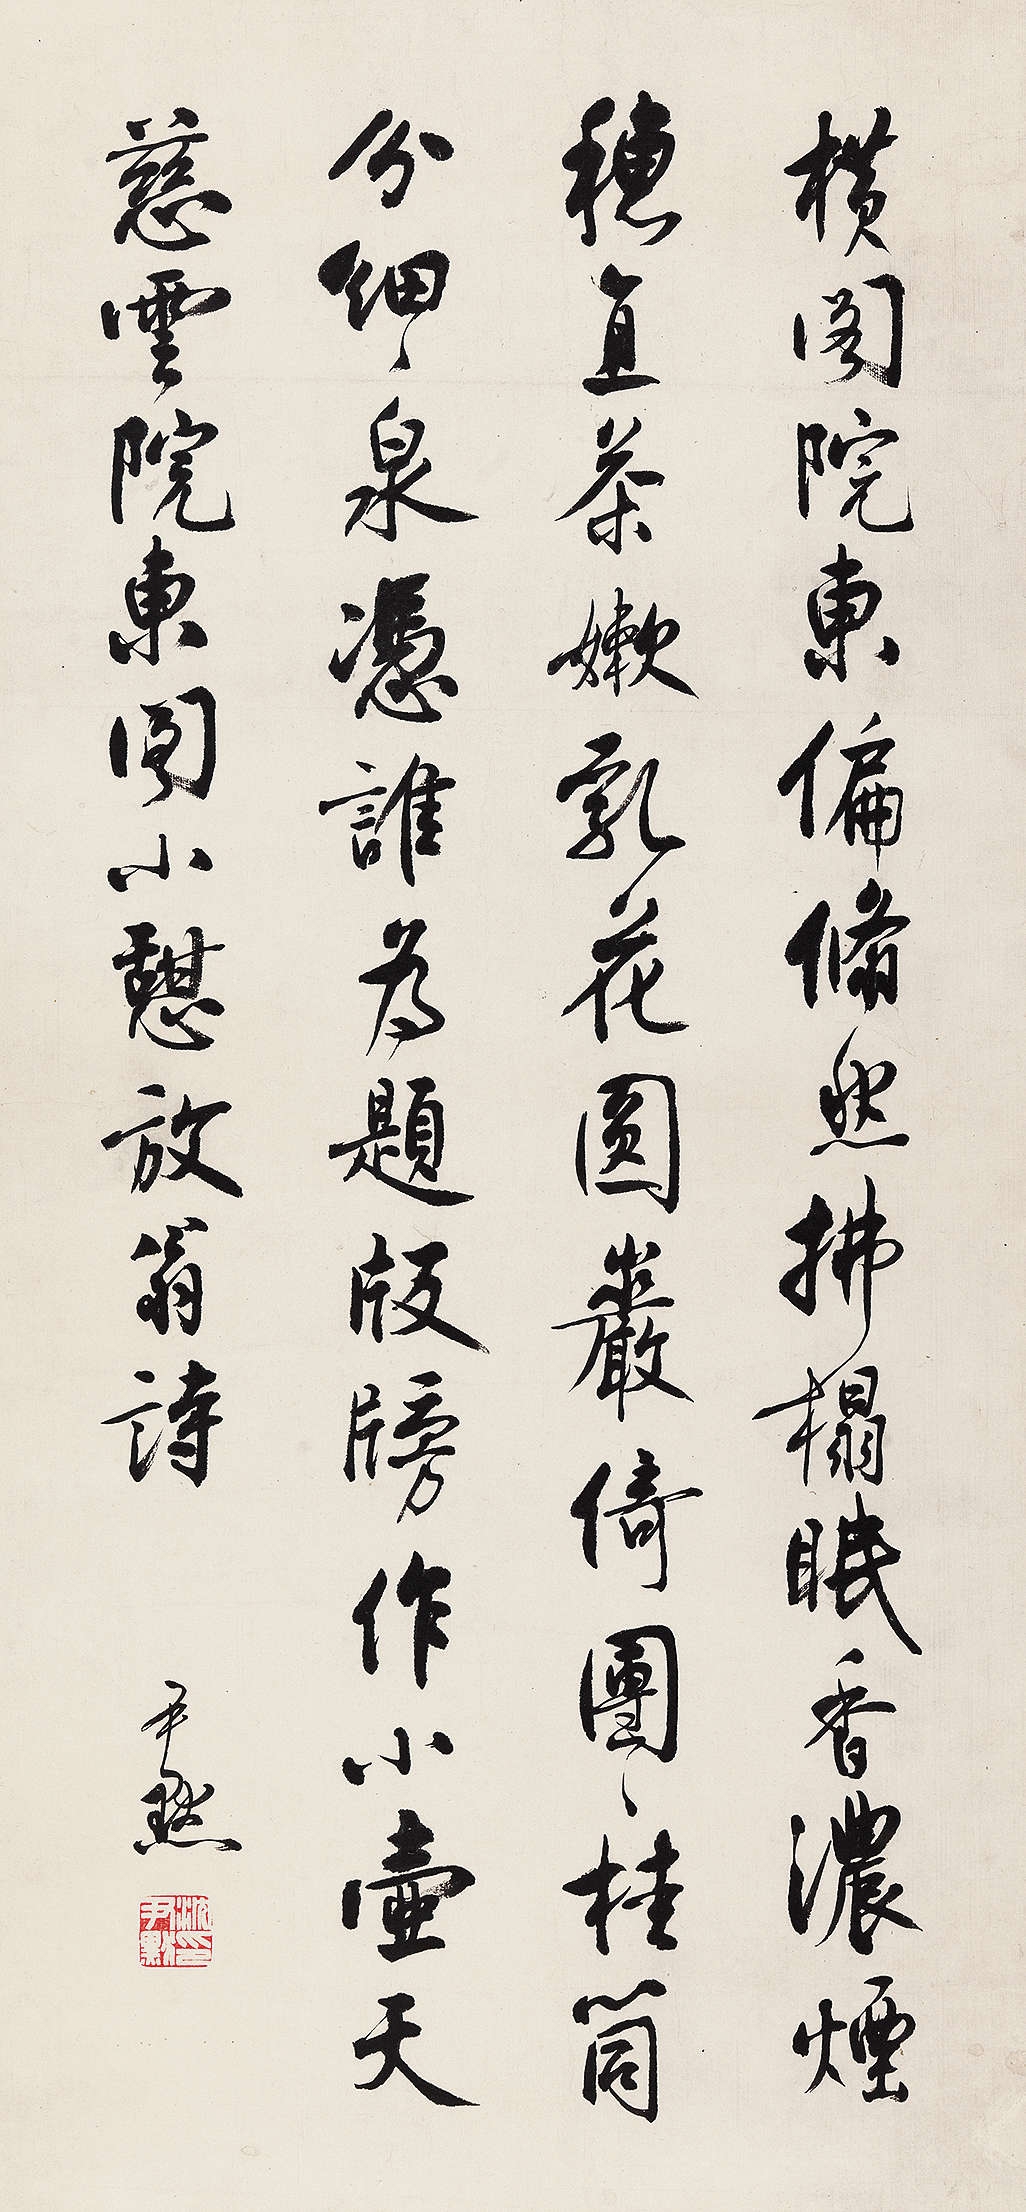 橫閣院東偏翛然拂榻眠香濃煙
穗直茶嫩乳花圓巖倚團〻桂筒
分細〻泉憑誰為題版牓作小壷天
慈雲院東閣小憩放翁詩
尹默
沈尹默印